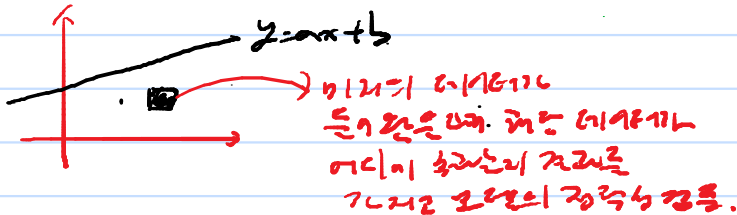 y=ax+b
미지의 데이터가
들어 왔을 때. 해당 데이터가
어디에 속하는지 결과를
가지고 모델의 정확성 검증.